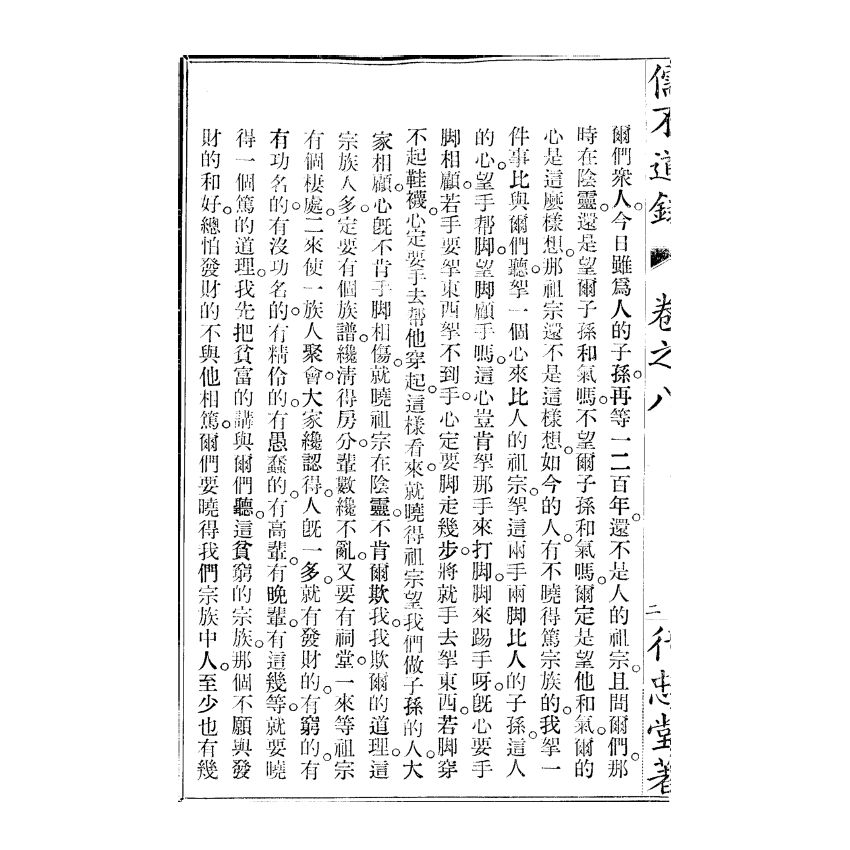 爾們衆人。今日雖爲人的子孫。再等一二百年。還不是人的祖宗。且問爾們。那
時在陰靈。還是望爾子孫和氣嗎。不望爾子孫和氣嗎。爾定是望他和氣。爾的
心是這麼樣想。那祖宗還不是這樣想。如今的人。有不曉得篤宗族的。我拏一
件事。比與爾們聽。拏一個心。來比人的祖宗。拏這兩手兩脚。比人的子孫。這人
的心。望手帮脚。望脚顧手嗎。這心豈肯拏那手來打脚。脚來踢手呀。旣心要手
脚相顧。若手要拏東西。拏不到手。心定要脚走幾步。將就手去拏東西。若脚穿
不起鞋襪。心定要手去幫他穿起。這樣看來。就曉得祖宗望我們做子孫的人。大
家相顧。心旣不肯手脚相傷。就曉祖宗在陰靈。不肯爾欺我。我欺爾的道理。這
宗族人多。定要有個族譜。纔清得房分。輩數纔不亂。又要有祠堂。一來等祖宗
有個棲處。二來使一族人聚會。大家纔認得。人旣一多。就有發財的。有窮的。有
有功名的。有沒功名的。有精伶的。有愚蠢的。有高輩。有晚輩。有這幾等。就要曉
得一個篤的道理。我先把貧富的講與爾們聽。這貧窮的宗族。那個不願與發
財的和好。總怕發財的不與他相篤。爾們要曉得我們宗族中人。至少也有幾
卷之八
二